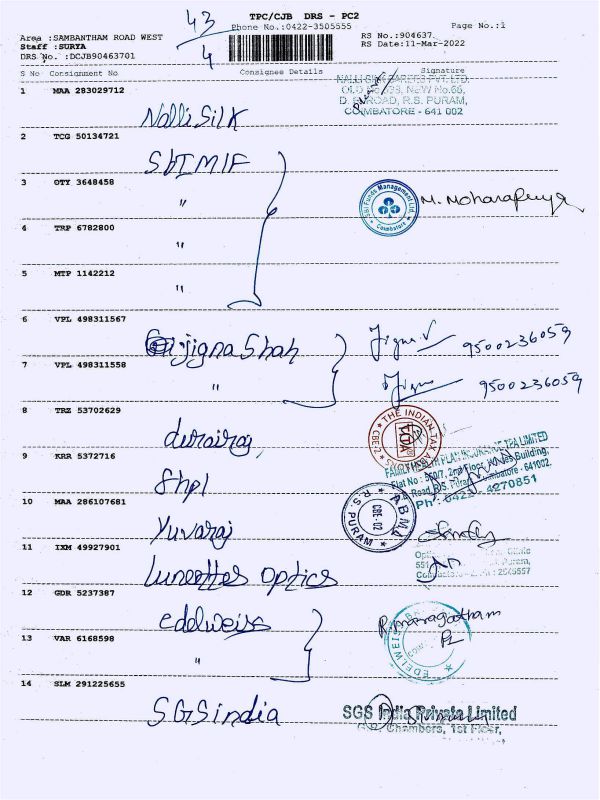 43
4
TPC/CJB DRS - PC2
Phone No.:0422-3505555
Page No.:1
Area :SAMBANTHAM ROAD WEST
Staff :SURYA
DRS No. :DCJB90463701
RS No.:904637
RS Date:11-Mar-2022
S No Consignment No Consignee Details Signature
1 MAA 283029712
Nalli Silk
NALLI SILK SAREES PVT. LTD.
NEW No.66,
ROAD, R.S. PURAM,
COIMBATORE - 641 002
2 TCG 50134721
SbIMIF
3 OTY 3648458
"
SBI Funds Management Ltd.
Coimbatore
4 TRP 6782800
"
5 MTP 1142212
"
6 VPL 498311567
jigna Shah
9500236059
7 VPL 498311558
"
9500236059
8 TRZ 53702629
durairaj
THE INDIAN TAX
CBE-2
FAMILY HEALTH PLAN INSURANCE TPA LIMITED
Flat No : 560/7, 2nd Floor, Building,
Road, R.S. Puram, Coimbatore - 641002.
Ph : 0422 - 4270851
9 KRR 5372716
fhpl
10 MAA 286107681
Yuvaraj
ABMA
CBE-02
R.S. PURAM
11 IXM 49927901
Lunettes optics
Clinic
Puram,
12 GDR 5237387
edelweiss
R. maragatham
EDELWEISS
13 VAR 6168598
"
14 SLM 291225655
SGS india
SGS India Private Limited
Chambers, 1st Floor,